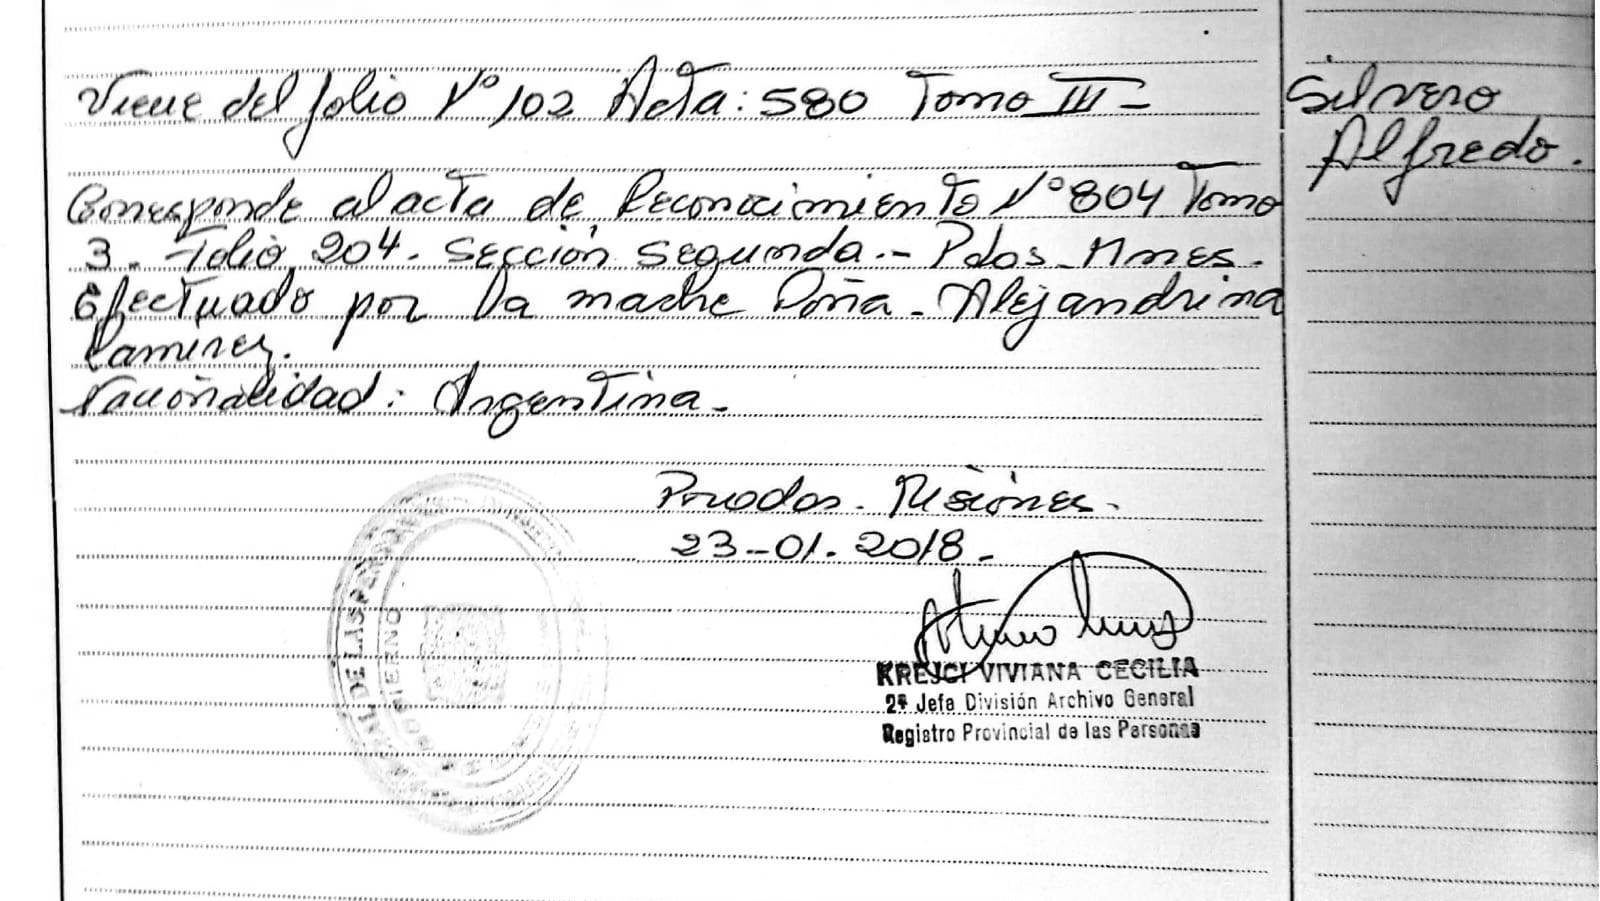 Viene del folio N° 102 Acta: 580 Tomo III -
Silvero
Alfredo.
Corresponde al acta de Reconocimiento N° 804 Tomo
3. Folio 204. Sección Segunda.- Pdas. Mnes.
Efectuado por la madre Doña - Alejandrina
Ramirez.
Nacionalidad: Argentina.
Posadas. Misiones.
23-01.2018.
KREJCI VIVIANA CECILIA
2ª Jefa División Archivo General
Registro Provincial de las Personas
DE LAS PERSONAS
GOBIERNO